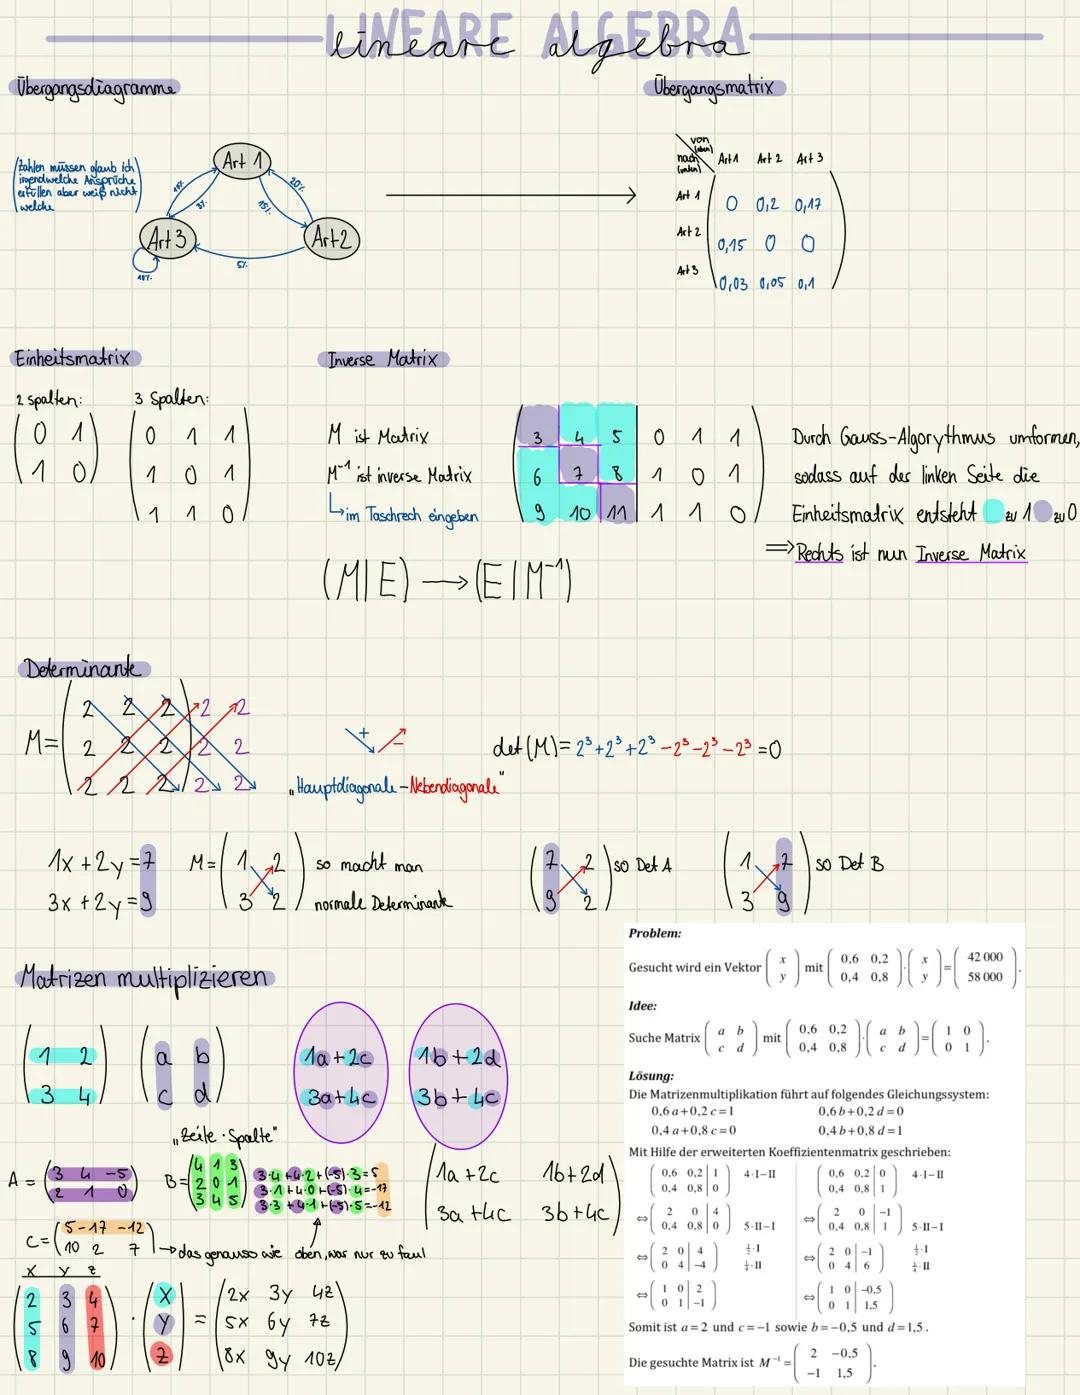 LINEARE ALGEBRA
lineare algebra
Übergangsdiagramme
Übergangsmatrix
(Zahlen müssen glaub ich
irgendwelche Ansprüche
erfüllen aber weiß nicht
welche)
Art 1
Art 3
Art 2
20%
3%
15%
5%
10%
von (oben)
nach (unten)
Art 1 Art 2 Art 3
Art 1 0 0,2 0,17
Art 2 0,15 0 0
Art 3 0,03 0,05 0,1
Einheitsmatrix
2 spalten:
0 1
1 0
3 Spalten:
0 1 1
1 0 1
1 1 0
Inverse Matrix
M ist Matrix
M⁻¹ ist inverse Matrix
↳ im Taschrech eingeben
3 4 5 0 1 1
6 7 8 1 0 1
9 10 11 1 1 0
Durch Gauss-Algorythmus umformen,
sodass auf der linken Seite die
Einheitsmatrix entsteht zu 1 zu 0
⇒ Rechts ist nun Inverse Matrix
(M|E) → (E|M⁻¹)
Determinante
M=
2 2 2 2 2
2 2 2 2 2
2 2 2 2 2
+ −
„Hauptdiagonale – Nebendiagonale"
det(M)= 2³+2³+2³−2³−2³−2³=0
1x+2y=7
3x+2y=9
M= (1 2
3 2)
so macht man
normale Determinante
(7 2
9 2) so Det A
(1 7
3 9) so Det B
Matrizen multiplizieren
1 2
3 4
a b
c d
1a+2c
3a+4c
1b+2d
3b+4c
„Zeile · Spalte"
A = (3 4 -5
2 1 0)
B= (4 1 3
2 0 1
3 4 5)
3·4+4·2+(-5)·3=5
3·1+4·0+(-5)·4=-17
3·3+4·1+(-5)·5=-12
1a+2c 1b+2d
3a+4c 3b+4c
C= (5 -17 -12
10 2 7)
→ das genauso wie oben, war nur zu faul
x y z
2 3 4
5 6 7
8 9 10
·
x
y
z
=
2x 3y 4z
5x 6y 7z
8x 9y 10z
Problem:
Gesucht wird ein Vektor (x y) mit (0,6 0,2 0,4 0,8)·(x y)=(42 000 58 000).
Idee:
Suche Matrix (a b c d) mit (0,6 0,2 0,4 0,8)·(a b c d)=(1 0 0 1).
Lösung:
Die Matrizenmultiplikation führt auf folgendes Gleichungssystem:
0,6 a+0,2 c=1 0,6 b+0,2 d=0
0,4 a+0,8 c=0 0,4 b+0,8 d=1
Mit Hilfe der erweiterten Koeffizientenmatrix geschrieben:
0,6 0,2 | 1 4·I−II 0,6 0,2 | 0 4·I−II
0,4 0,8 | 0 0,4 0,8 | 1
⇔ 2 0 | 4 ⇔ 2 0 | −1
0,4 0,8 | 0 5·II−I 0,4 0,8 | 1 5·II−I
⇔ 2 0 | 4 ½·I ⇔ 2 0 | −1 ½·I
0 4 | −4 ¼·II 0 4 | 6 ¼·II
⇔ 1 0 | 2 ⇔ 1 0 | −0,5
0 1 | −1 0 1 | 1,5
Somit ist a=2 und c=−1 sowie b=−0,5 und d=1,5.
Die gesuchte Matrix ist M⁻¹=(2 −0,5 −1 1,5).